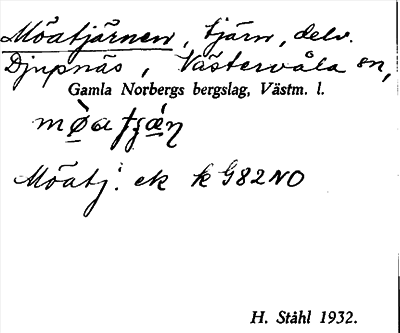 Möatjärnen, tjärn, delv.
Djupnäs, Västervåla sn,
Gamla Norbergs bergslag, Västm. l.
Möatj. ek k G82NO
H. Ståhl 1932.